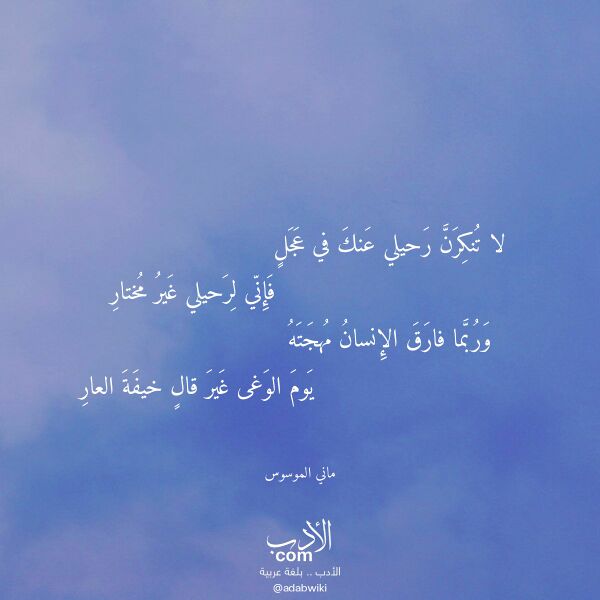 لا تُنكِرَنَّ رَحيلي عَنكَ في عَجَلٍ
فَإِنّي لِرَحيلي غَيرُ مُختارِ
وَرُبَّما فارَقَ الإِنسانُ مُهجَتَهُ
يَومَ الوَغى غَيرَ قالٍ خيفَةَ العارِ
ماني الموسوس
الأدب
com
الأدب .. بلغة عربية
@adabwiki